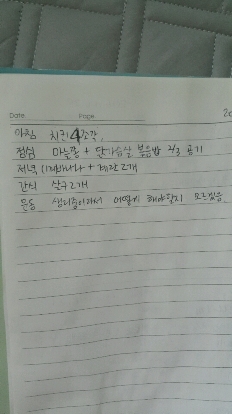 Date. Page.
아침 치킨 4조각.
점심 마늘쫑 + 닭가슴살 볶음밥 2/3 공기
저녁 1개바나나 + 계란 2개
간식 살구 2개
운동 생리중이라서 어떻게 해야할지 모르겠음.